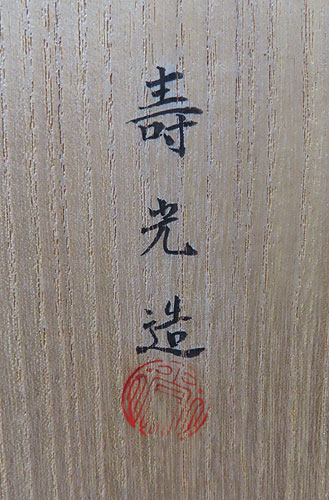 壽光造